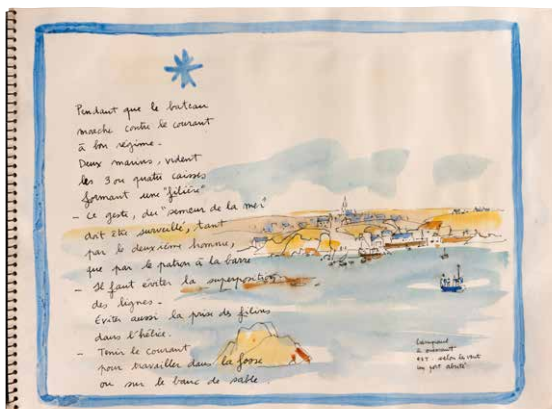 Pendant que le bateau
marche contre le courant
à bon régime -
Deux marins, vident
les 3 ou quatre caisses
formant une "filière"
- Ce geste, du "semeur de la mer"
doit être surveillé, tant
par le deuxième homme,
que par le patron à la barre
- Il faut éviter la superposition
des lignes -
Eviter aussi la prise des filins
dans l'hélice.
- Tenir le courant
pour travailler dans la fosse
ou sur le banc de sable
à
EST. selon le vent
un port abrité